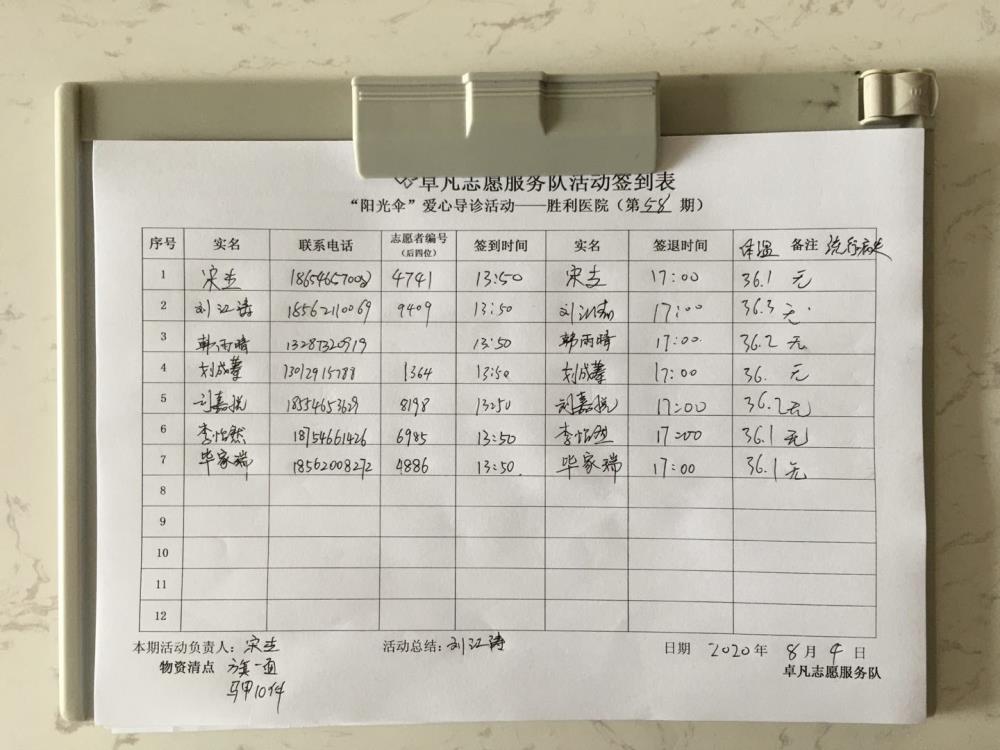 卓凡志愿服务队活动签到表
“阳光伞”爱心导诊活动——胜利医院（第58期）
序号 实名 联系电话 志愿者编号（后四位） 签到时间 实名 签退时间 体温 备注 流行病史
1 宋志 18654657002 4741 13:50 宋志 17:00 36.1 无
2 刘江涛 18562110069 9409 13:50 刘江涛 17:00 36.3 无
3 韩雨晴 13287320919 13:50 韩雨晴 17:00 36.2 无
4 刘成蓁 13012915788 1364 13:50 刘成蓁 17:00 36. 无
5 刘嘉悦 18554653629 8198 13:50 刘嘉悦 17:00 36.2 无
6 李怡然 18754661426 6985 13:50 李怡然 17:00 36.1 无
7 毕家瑞 18562008272 4886 13:50. 毕家瑞 17:00 36.1 无
8
9
10
11
12
本期活动负责人：宋志 活动总结：刘江涛 日期 2020年8月4日
物资清点 旗一面 卓凡志愿服务队
马甲10件